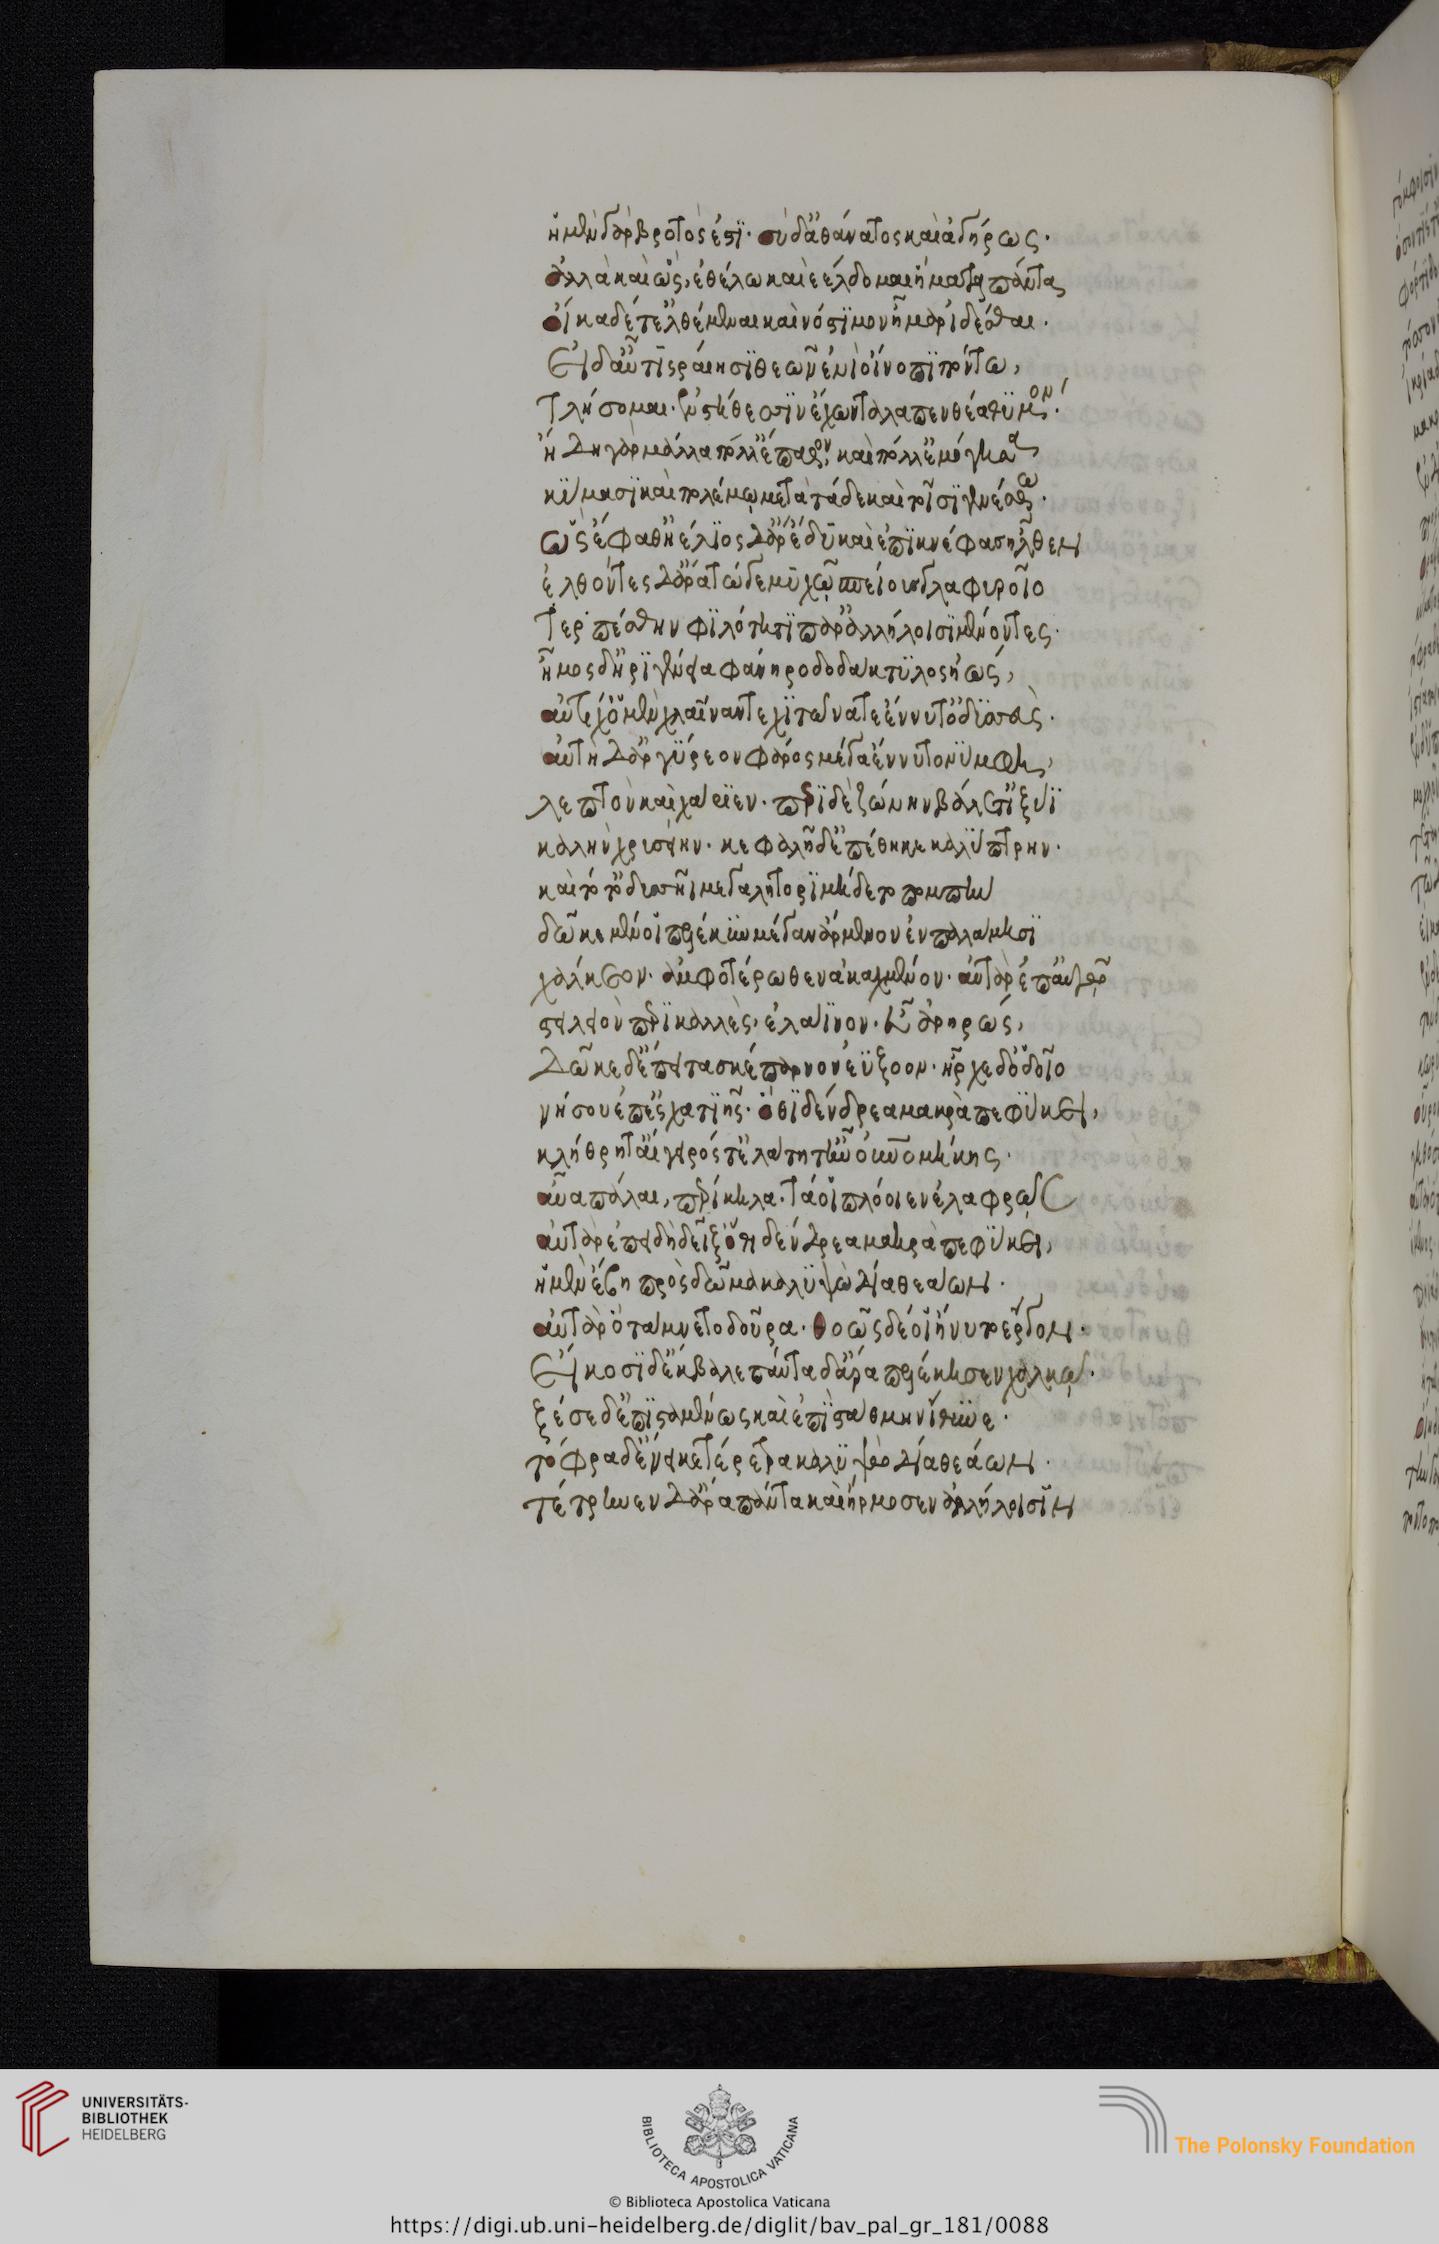 ἡ μὲν γὰρ βροτός ἐστι· σὺ δ' ἀθάνατος καὶ ἀγήρως·
ἀλλὰ καὶ ὣς, ἐθέλω καὶ ἐέλδομαι ἤματα πάντα
οἴκαδέ τ' ἐλθέμεναι καὶ νόστιμον ἦμαρ ἰδέσθαι·
εἰ δ' αὖ τις ῥαίησι θεῶν ἐνὶ οἴνοπι πόντω,
τλήσομαι· ἐν στήθεσιν ἔχων ταλαπενθέα θυμόν·
ἤδη γὰρ μάλα πόλλ' ἔπαθον, καὶ πόλλ' ἐμόγησα
κύμασι καὶ πολέμω μετὰ τάδε καὶ τοῖσι γενέσθω·
ὣς ἔφαθ' ἠέλιος δ' ἄρ' ἔδυ καὶ ἐπὶ κνέφας ἦλθεν
ἐλθόντες δ' ἄρα τώ γε μυχῶ σπείους γλαφυροῖο
τερπέσθην φιλότητι παρ' ἀλλήλοισι μένοντες·
ἦμος δ' ἠριγένεια φάνη ῥοδοδάκτυλος ἠώς,
αὐτίχ' ὁ μὲν χλαῖνάν τε χιτῶνά τε ἕννυτ' ὀδυσσεὺς·
αὐτὴ δ' ἀργύρεον φάρος μέγα ἕννυτο νύμφη,
λεπτὸν καὶ χαρίεν· περὶ δὲ ζώνην βάλετ' ἰξυῖ
καλὴν χρυσείην· κεφαλῆ δ' ἐπέθηκε καλύπτρην·
καὶ τότ' ὀδυσσῆι μεγαλήτορι μήδετο πομπὴν
δῶκε μέν οἱ πέλεκυν μέγαν ἄρμενον ἐν παλάμησι
χάλκεον· ἀμφοτέρωθεν ἀκαχμένον· αὐτὰρ ἐπ' αὐτῶ
στειλειὸν περικαλλὲς, ἐλάινον· εὖ ἀρηρώς,
δῶκε δ' ἔπειτα σκέπαρνον ἐύξοον· ἦρχε δ' ὁδοῖο
νήσου ἐπ' ἐσχατιῆς· ὅθι δένδρεα μακρὰ πεφύκει,
κλήθρη τ' αἴγειρός τ' ἐλάτη τ' ἦν οὐρανομήκης·
αὖα πάλαι, περίκηλα· τά οἱ πλώοιεν ἐλαφρῶς
αὐτὰρ ἐπειδὴ δεῖξ' ὅθι δένδρεα μακρὰ πεφύκει,
ἡ μὲν ἔβη πρὸς δῶμα καλυψὼ δῖα θεάων·
αὐτὰρ ὁ τάμνετο δοῦρα· θοῶς δέ οἱ ἤνυτο ἔργον·
εἴκοσι δ' ἔκβαλε πάντα δ' ἄρα πελέκησεν χαλκῶ·
ξέσε δ' ἐπισταμένως καὶ ἐπὶ στάθμην ἴθυνε·
τόφρα δ' ἔνεικε τέρετρα καλυψὼ δῖα θεάων·
τέτρηνεν δ' ἄρα πάντα καὶ ἥρμοσεν ἀλλήλοισιν
UNIVERSITÄTS-
BIBLIOTHEK
HEIDELBERG
BIBLIOTECA APOSTOLICA VATICANA
The Polonsky Foundation
© Biblioteca Apostolica Vaticana
https://digi.ub.uni-heidelberg.de/diglit/bav_pal_gr_181/0088